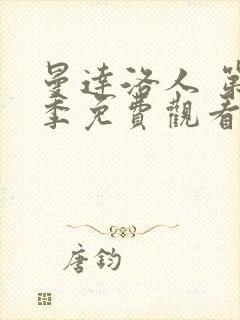 曼達洛人 第
季免費觀看
唐鈞